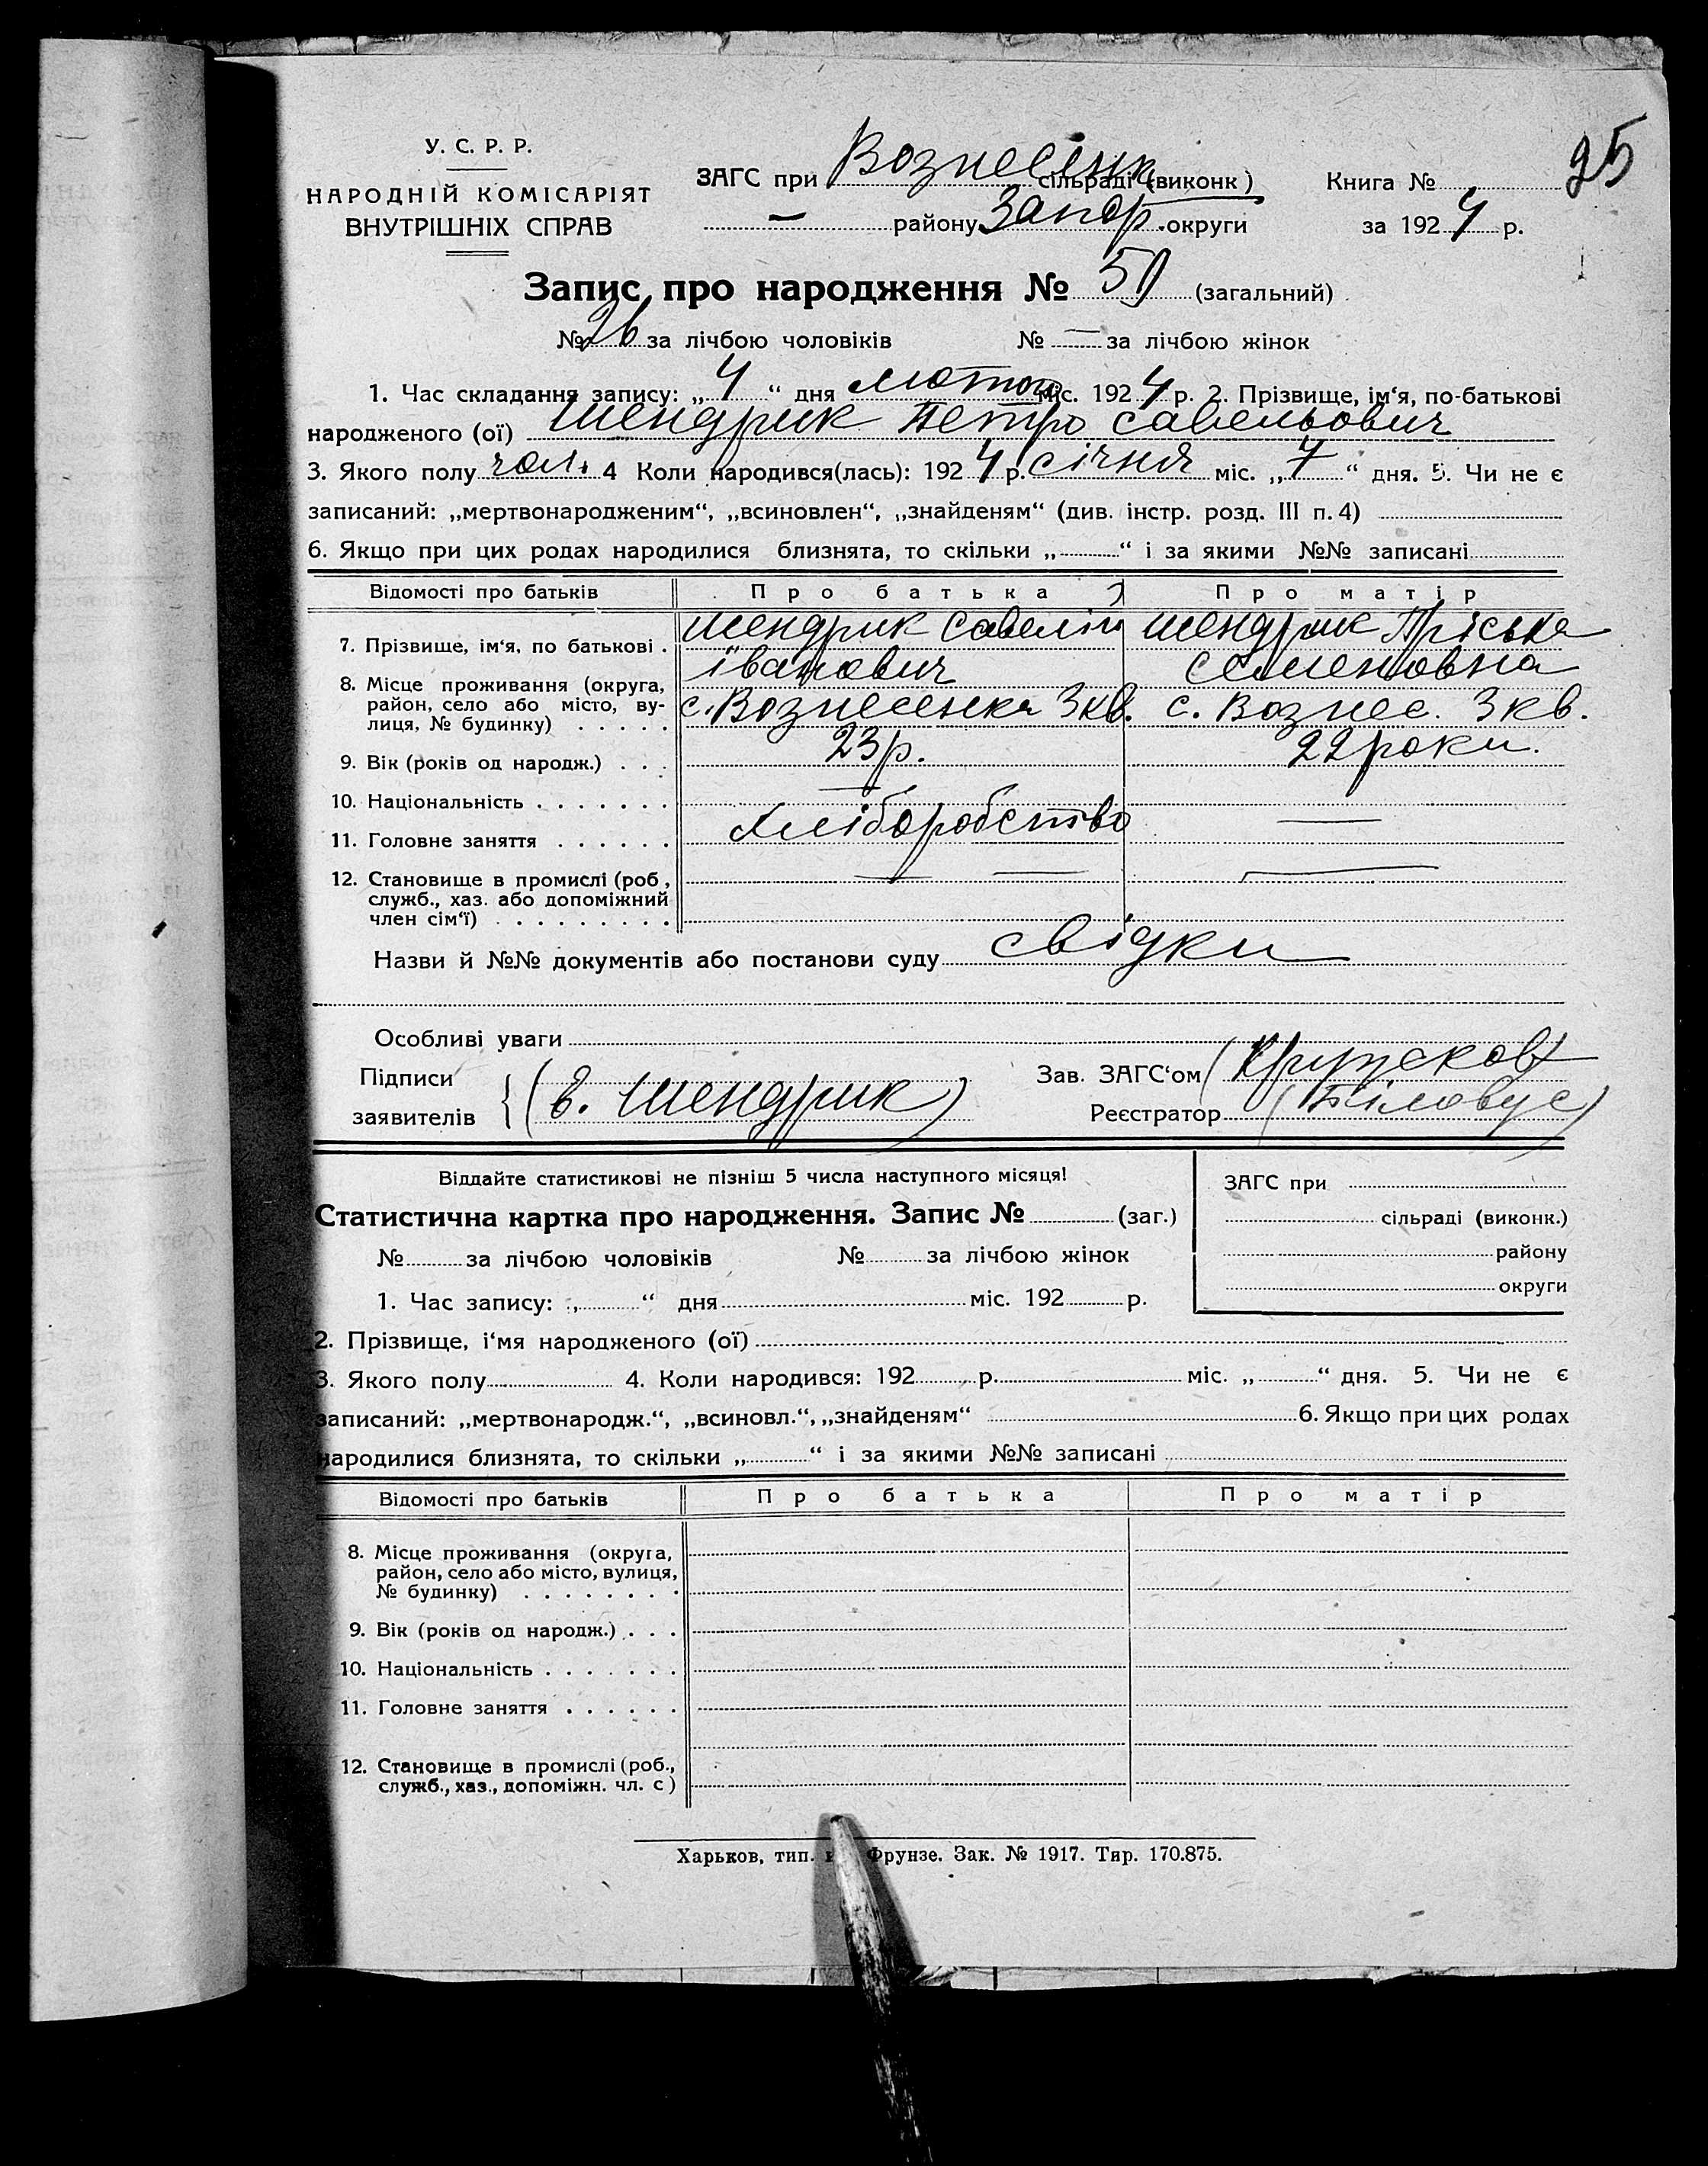 25
У. С. Р. Р.
НАРОДНІЙ КОМІСАРІЯТ
ВНУТРІШНІХ СПРАВ
ЗАГС при Вознесенк сільраді (виконк)
— району Запор. округи
Книга №
за 1924 р.
Запис про народження № 50 (загальний)
№ 26 за лічбою чоловіків № — за лічбою жінок
1. Час складання запису: „4“ дня лютого міс. 1924 р. 2. Прізвище, ім‘я, по-батькові
народженого (ої) Шендрик Петро Савельович
3. Якого полу чол. 4 Коли народився(лась): 1924 р. січня міс. „7“ дня. 5. Чи не є
записаний: „мертвонародженим“, „всиновлен“, „знайденям“ (див. інстр. розд. III п. 4)
6. Якщо при цих родах народилися близнята, то скільки „ “ і за якими №№ записані
Відомості про батьків Про батька Про матір
7. Прізвище, ім‘я, по батькові . Шендрик Савелій Іванович Шендрик Пріська Семеновна
8. Місце проживання (округа,
район, село або місто, ву-
лиця, № будинку) . . . . . с. Вознесенка 3 кв. с. Вознес. 3 кв.
9. Вік (років од народж.) . . . 23 р. 22 роки.
10. Національність . . . . . . . —
11. Головне заняття . . . . . . Хліборобство —
12. Становище в промислі (роб,
служб., хаз. або допоміжний
член сім‘ї) . . . . . . . . . — — —
Назви й №№ документів або постанови суду свідки
Особливі уваги
Підписи
заявителів { (в. Шендрик)
Зав. ЗАГС‘ом
Реєстратор (Біловус)
Віддайте статистикові не пізніш 5 числа наступного місяця!
Статистична картка про народження. Запис № (заг.)
№ за лічбою чоловіків № за лічбою жінок
1. Час запису: „ “ дня міс. 192 р.
ЗАГС при
сільраді (виконк.)
району
округи
2. Прізвище, і‘мя народженого (ої)
3. Якого полу 4. Коли народився: 192 р. міс. „ “ дня. 5. Чи не є
записаний: „мертвонародж.“, „всиновл.“, „знайденям“ 6. Якщо при цих родах
народилися близнята, то скільки „ “ і за якими №№ записані
Відомості про батьків Про батька Про матір
8. Місце проживання (округа,
район, село або місто, вулиця,
№ будинку) . . . . . . .
9. Вік (років од народж.) . . .
10. Національність . . . . . . .
11. Головне заняття . . . . . .
12. Становище в промислі (роб.,
служб., хаз., допоміжн. чл. с)
Харьков, тип. Фрунзе. Зак. № 1917. Тир. 170.875.